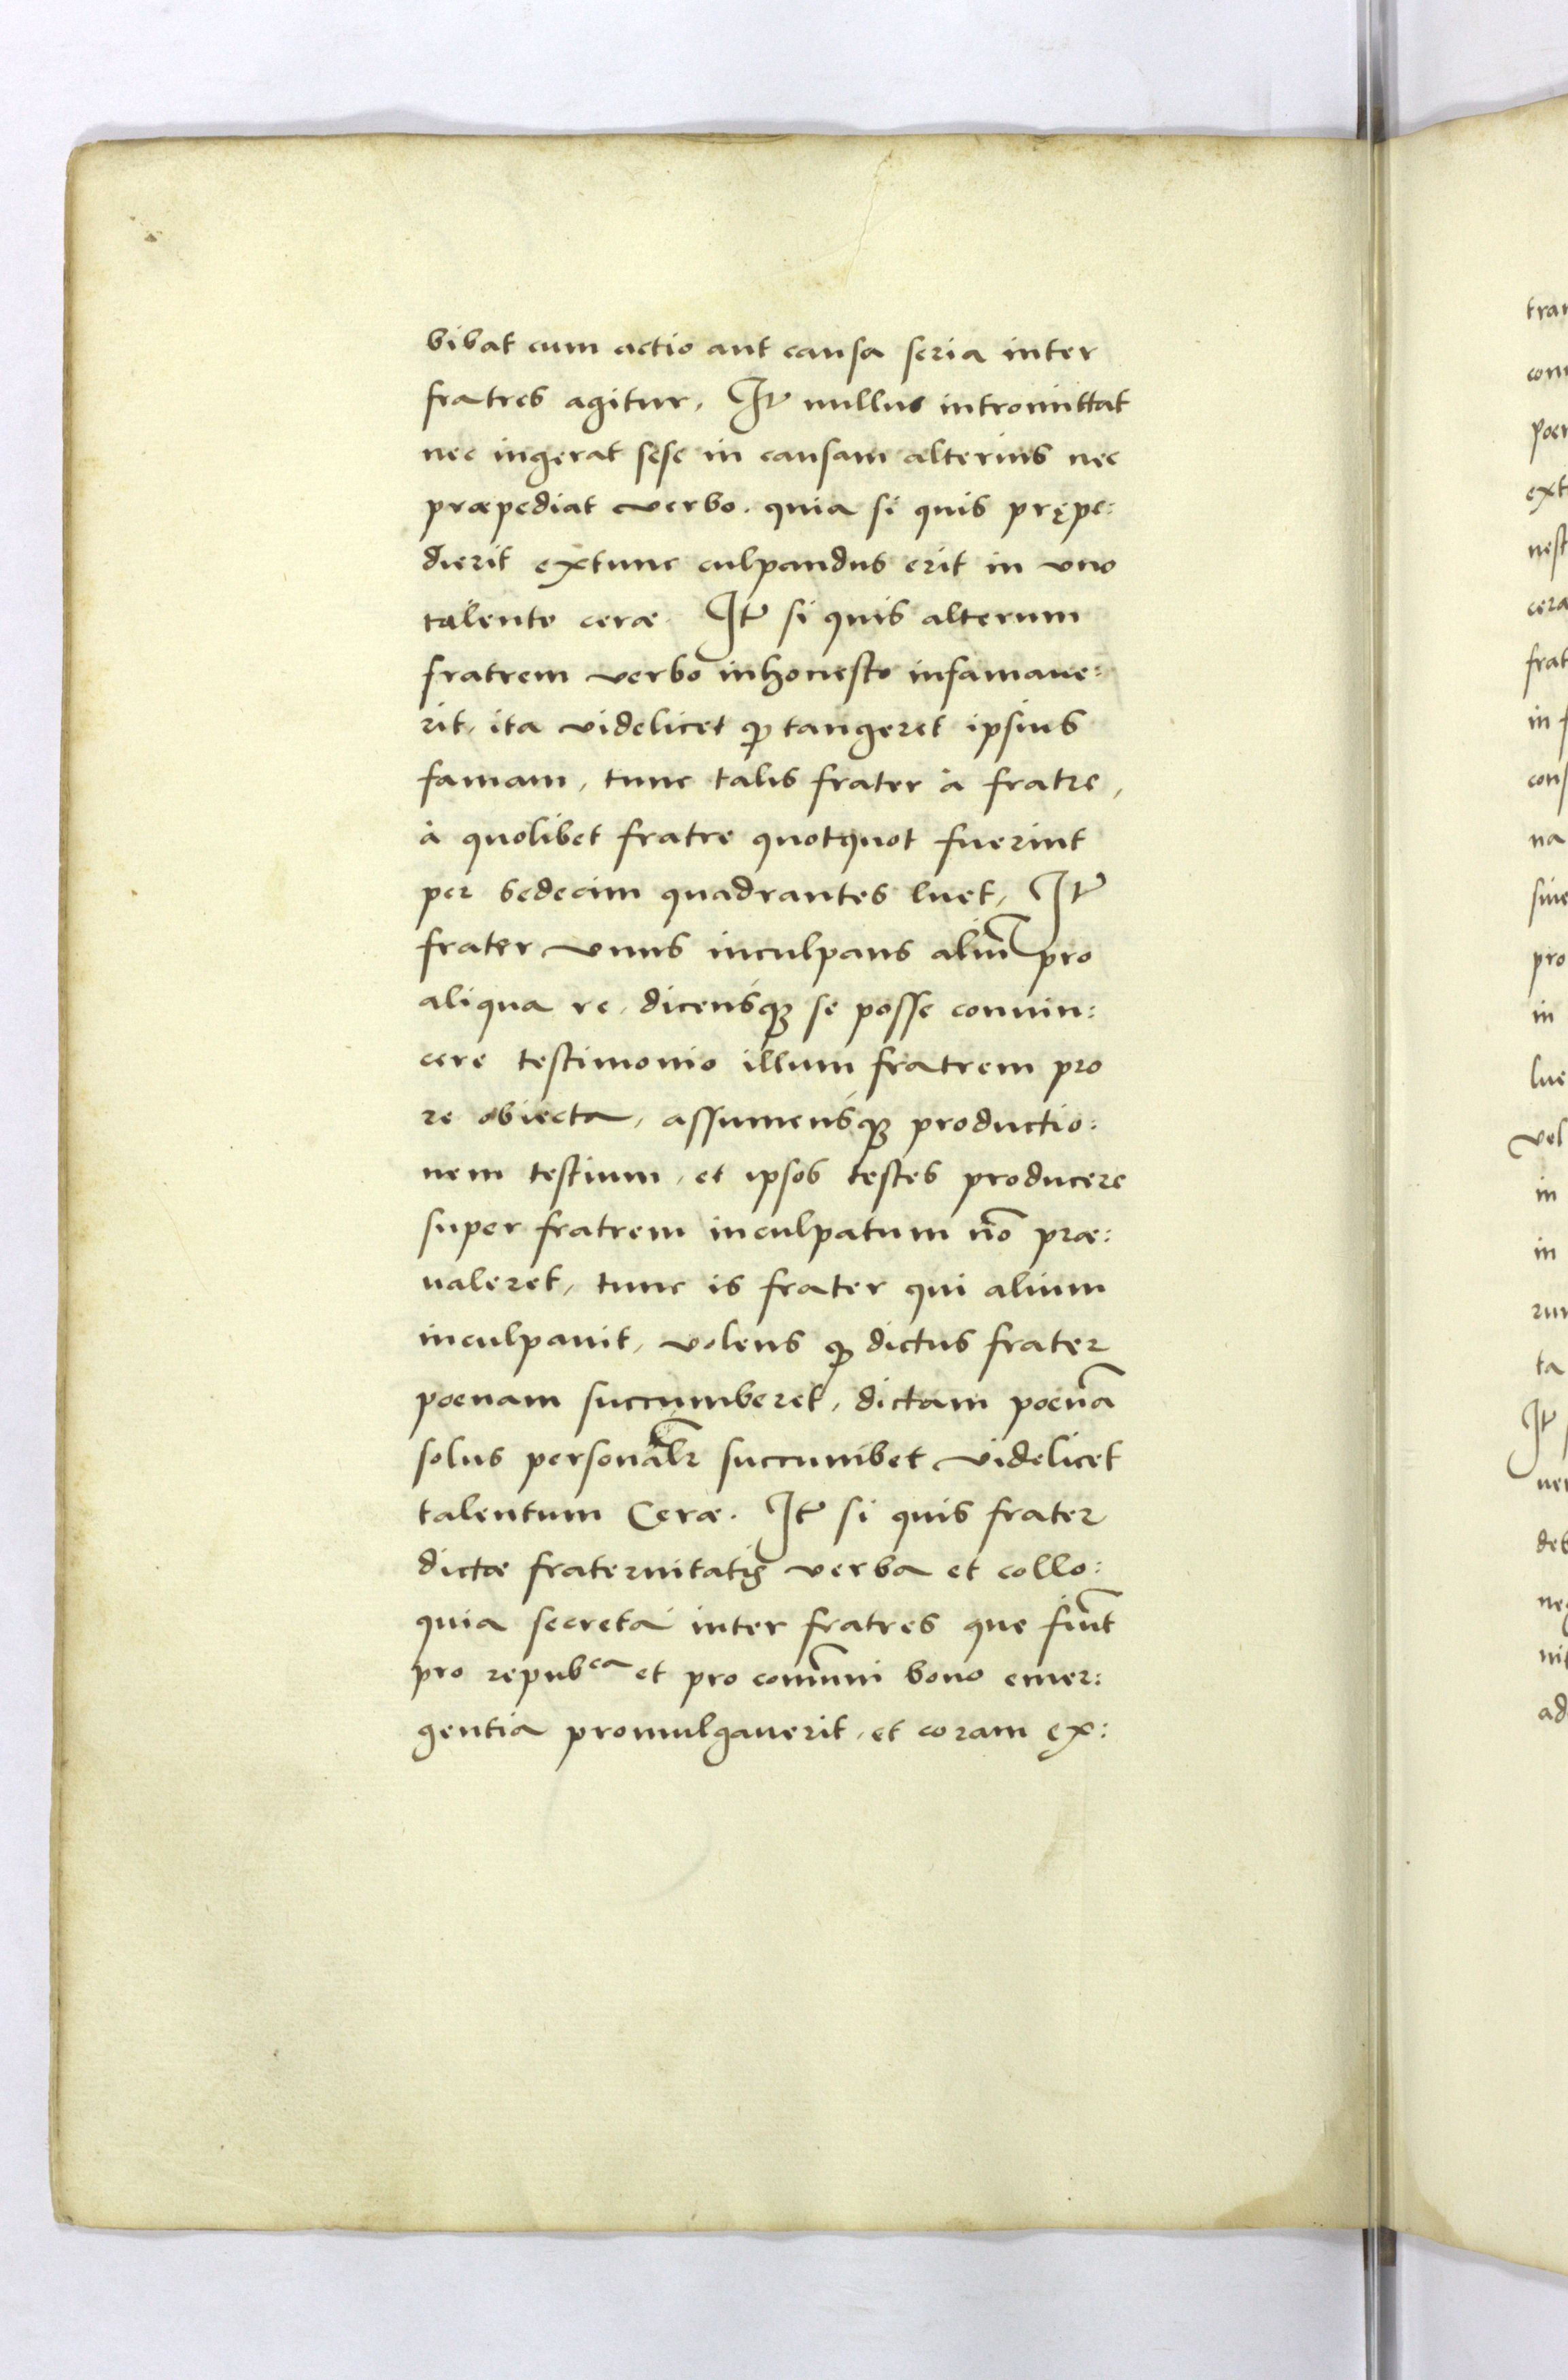 bibat cum actio aut causa seria inter
fratres agitur, It̃ nullus intromittat
nec ingerat sese in causam alterius nec
præpediat verbo. quia si quis prępe:
dierit extunc culpandus erit in vno
talento ceræ. It̃ si quis alterum
fratrem verbo inhonesto infamaue:
rit, ita videlicet ꝙ tangeret ipsius
famam, tunc talis frater à fratre,
à quolibet fratre quotquot fuerint
per sedecim quadrantes luet, It̃
frater vnus inculpans aliũ pro
aliqua re, dicensqꝫ se posse conuin:
cere testimonio illum fratrem pro
re obiecta, assumensqꝫ productio:
nem testium, et ipsos testes producere
super fratrem inculpatum nõ præ:
ualeret, tunc is frater qui alium
inculpauit, volens ꝙ dictus frater
poenam succumberet, dictam poenã
solus personalr̃ succumbet videlicet
talentum Ceræ. It̃ si quis frater
dictæ fraternitatis verba et collo:
quia secreta inter fratres que fiũt
pro repubᶜᵃ et pro com̃uni bono emer:
gentia promulgauerit, et coram ex:
tran
com
poen
ext
nest
cera
frat
in f
cons
na
siue
pro
in
lue
vel
in
in
rum
ta
It̃
uer
deb
neg
nit
ad